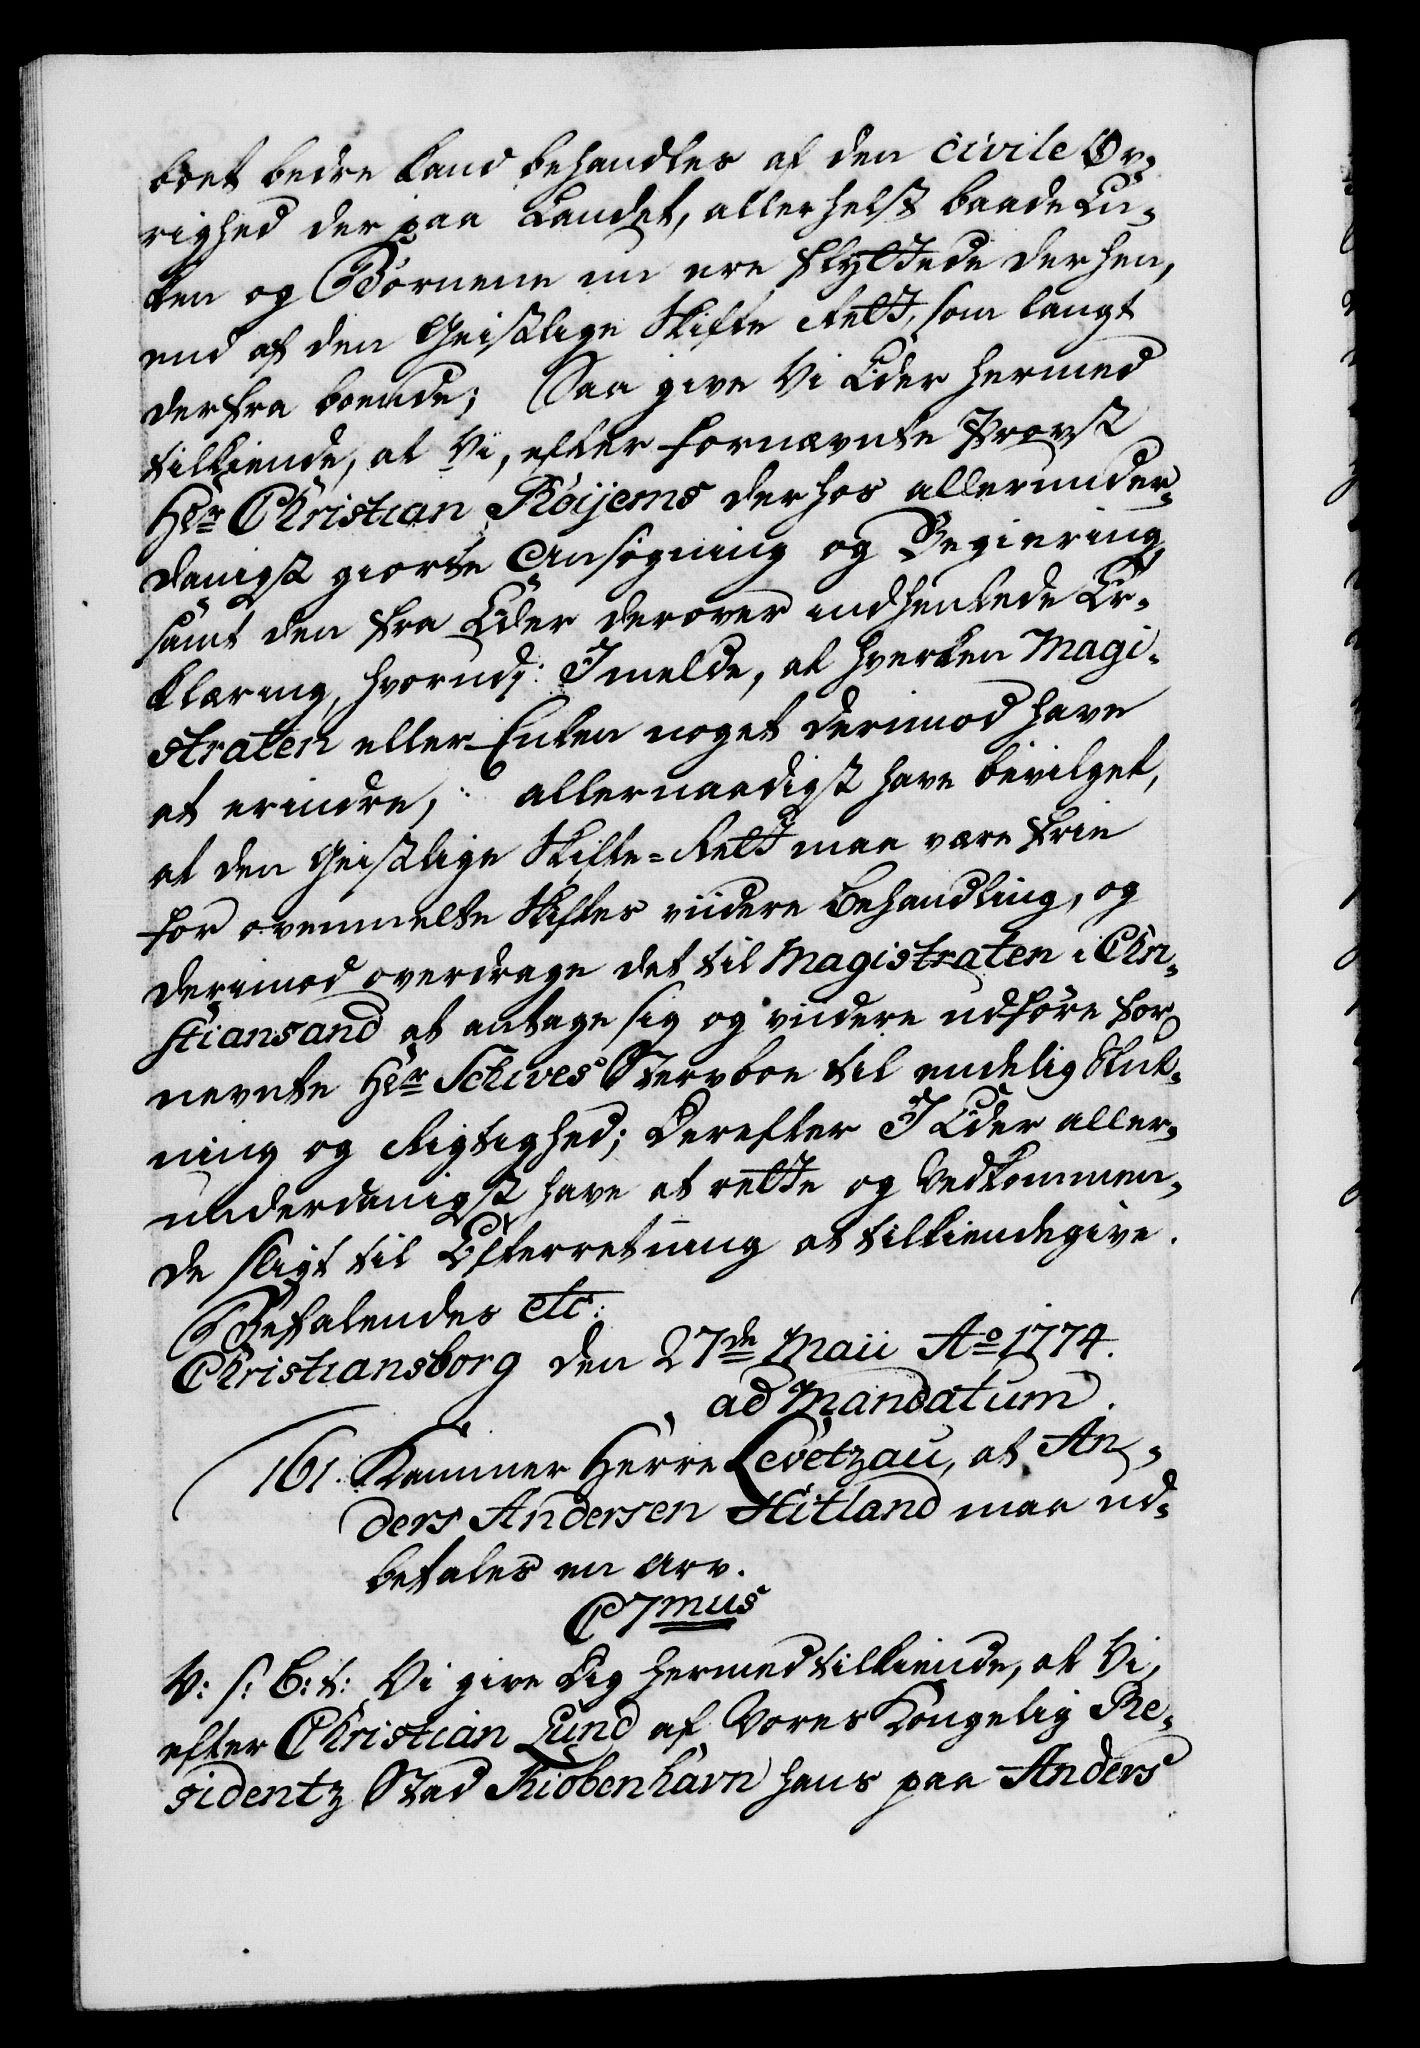 boet bedre kand behandles af den civile Øv¬
righed der paa Landet, allerhelst baade En¬
ken og Börnene nu ere flyttede derhen,
end af den Geistlige Skifte Rett, som langt
derfra boende; Saa give Vi Eder hermed
tilkiende, at Vi, efter fornævnte Provst
Hr Christian Röijems derhos allerunder¬
danigst giorte Ansögning og Begiering
samt den fra Eder derover indhentede Er¬
klæring, hvorudj: I melde, at hverken Magi¬
straten eller Enken noget derimod have
at erindre,: allernaadigst have bevilget,
at den Geistlige Skifte-Rett maa være frie
for ovenmelte Skiftes viidere Behandling, og
derimod overdrage det til Magistraten i Chri¬
stiansand at antage sig og viidere udföre for¬
nevnte Hr Schives Stervboe til endelig Slut¬
ning og Rigtighed; Derefter I Eder aller¬
underdanigst have at rette og Vedkommen¬
de sligt til Efterretning at tilkiendegive.
Befalendes etc:
Christiansborg den 27de Maii Ao 1774.
ad Mandatum.
161. Kammer Herre Levetzau, at An¬
ders Andersen Hitland maa ud¬
betales en Arv.
C7mus
V: s: G: t: Vi give Dig hermed tilkiende, at Vi,
efter Christian Lund af Vores Kongelig Re¬
sidentz Stad Kiöbenhavn hans paa Anders